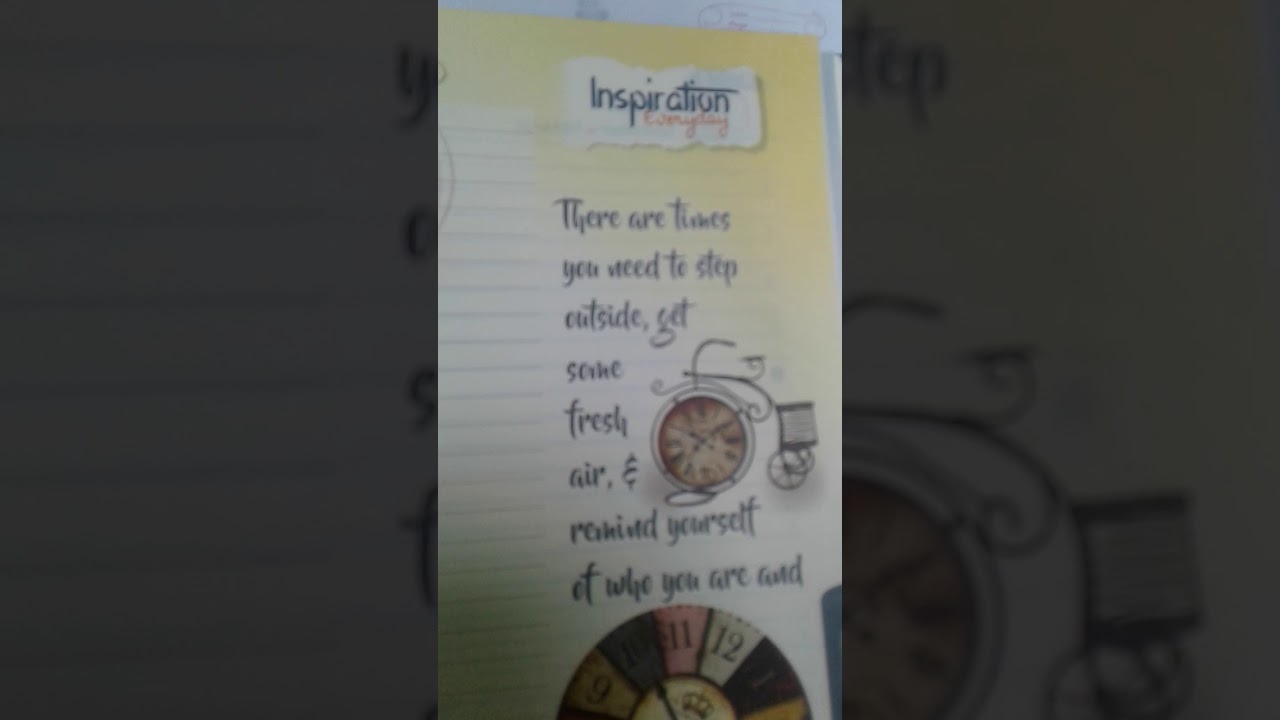 Inspiration
Everyday
There are times
you need to step
outside, get
some
fresh
air, &
remind yourself
of who you are and
9 10 11 12 1